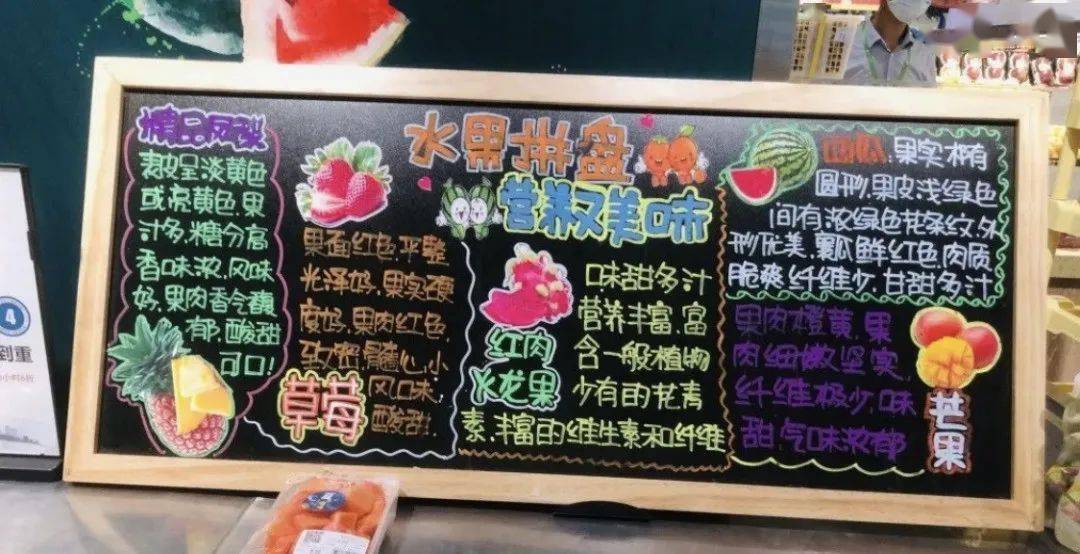 水果拼盘
营养又美味
精品凤梨
表皮呈淡黄色
或亮黄色.果
汁多.糖分高
香味浓.风味
好.果肉香气馥
郁.酸甜
可口!
果面红色.平整
光泽好.果实硬
度好.果肉红色
致密髓心小
风口味
酸甜.
草莓
味甜多汁
营养丰富.富
含一般植物
少有的花青
素.丰富的维生素和纤维
红肉
火龙果
西瓜:果实椭有
圆形.果皮浅绿色
间有浓绿色花条纹.外
形优美.瓤鲜红色.肉质
脆爽纤维少.甘甜多汁
果肉橙黄.果
肉细嫩坚实.
纤维极少.味
甜气味浓郁
芒果
4
到重